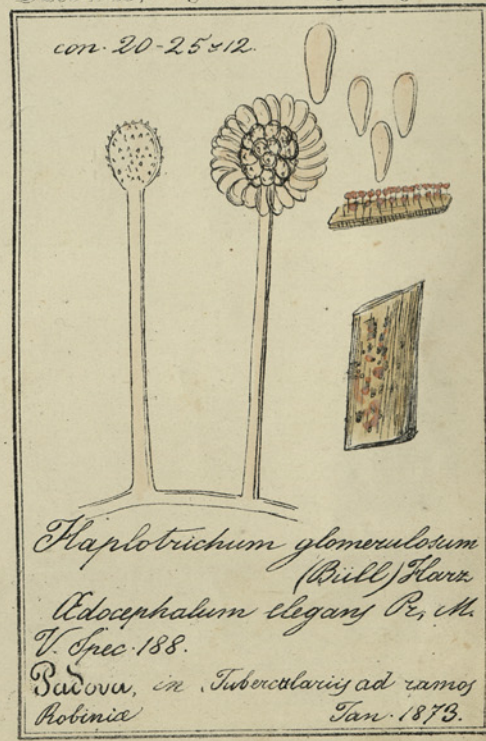 con. 20-25 x 12.
Haplotrichum glomerulosum
(Bull) Harz
Œdocephalum elegans Pr. M.
V. Spec. 188.
Padova, in Tuberculariis ad ramos
Robiniæ Jan. 1873.